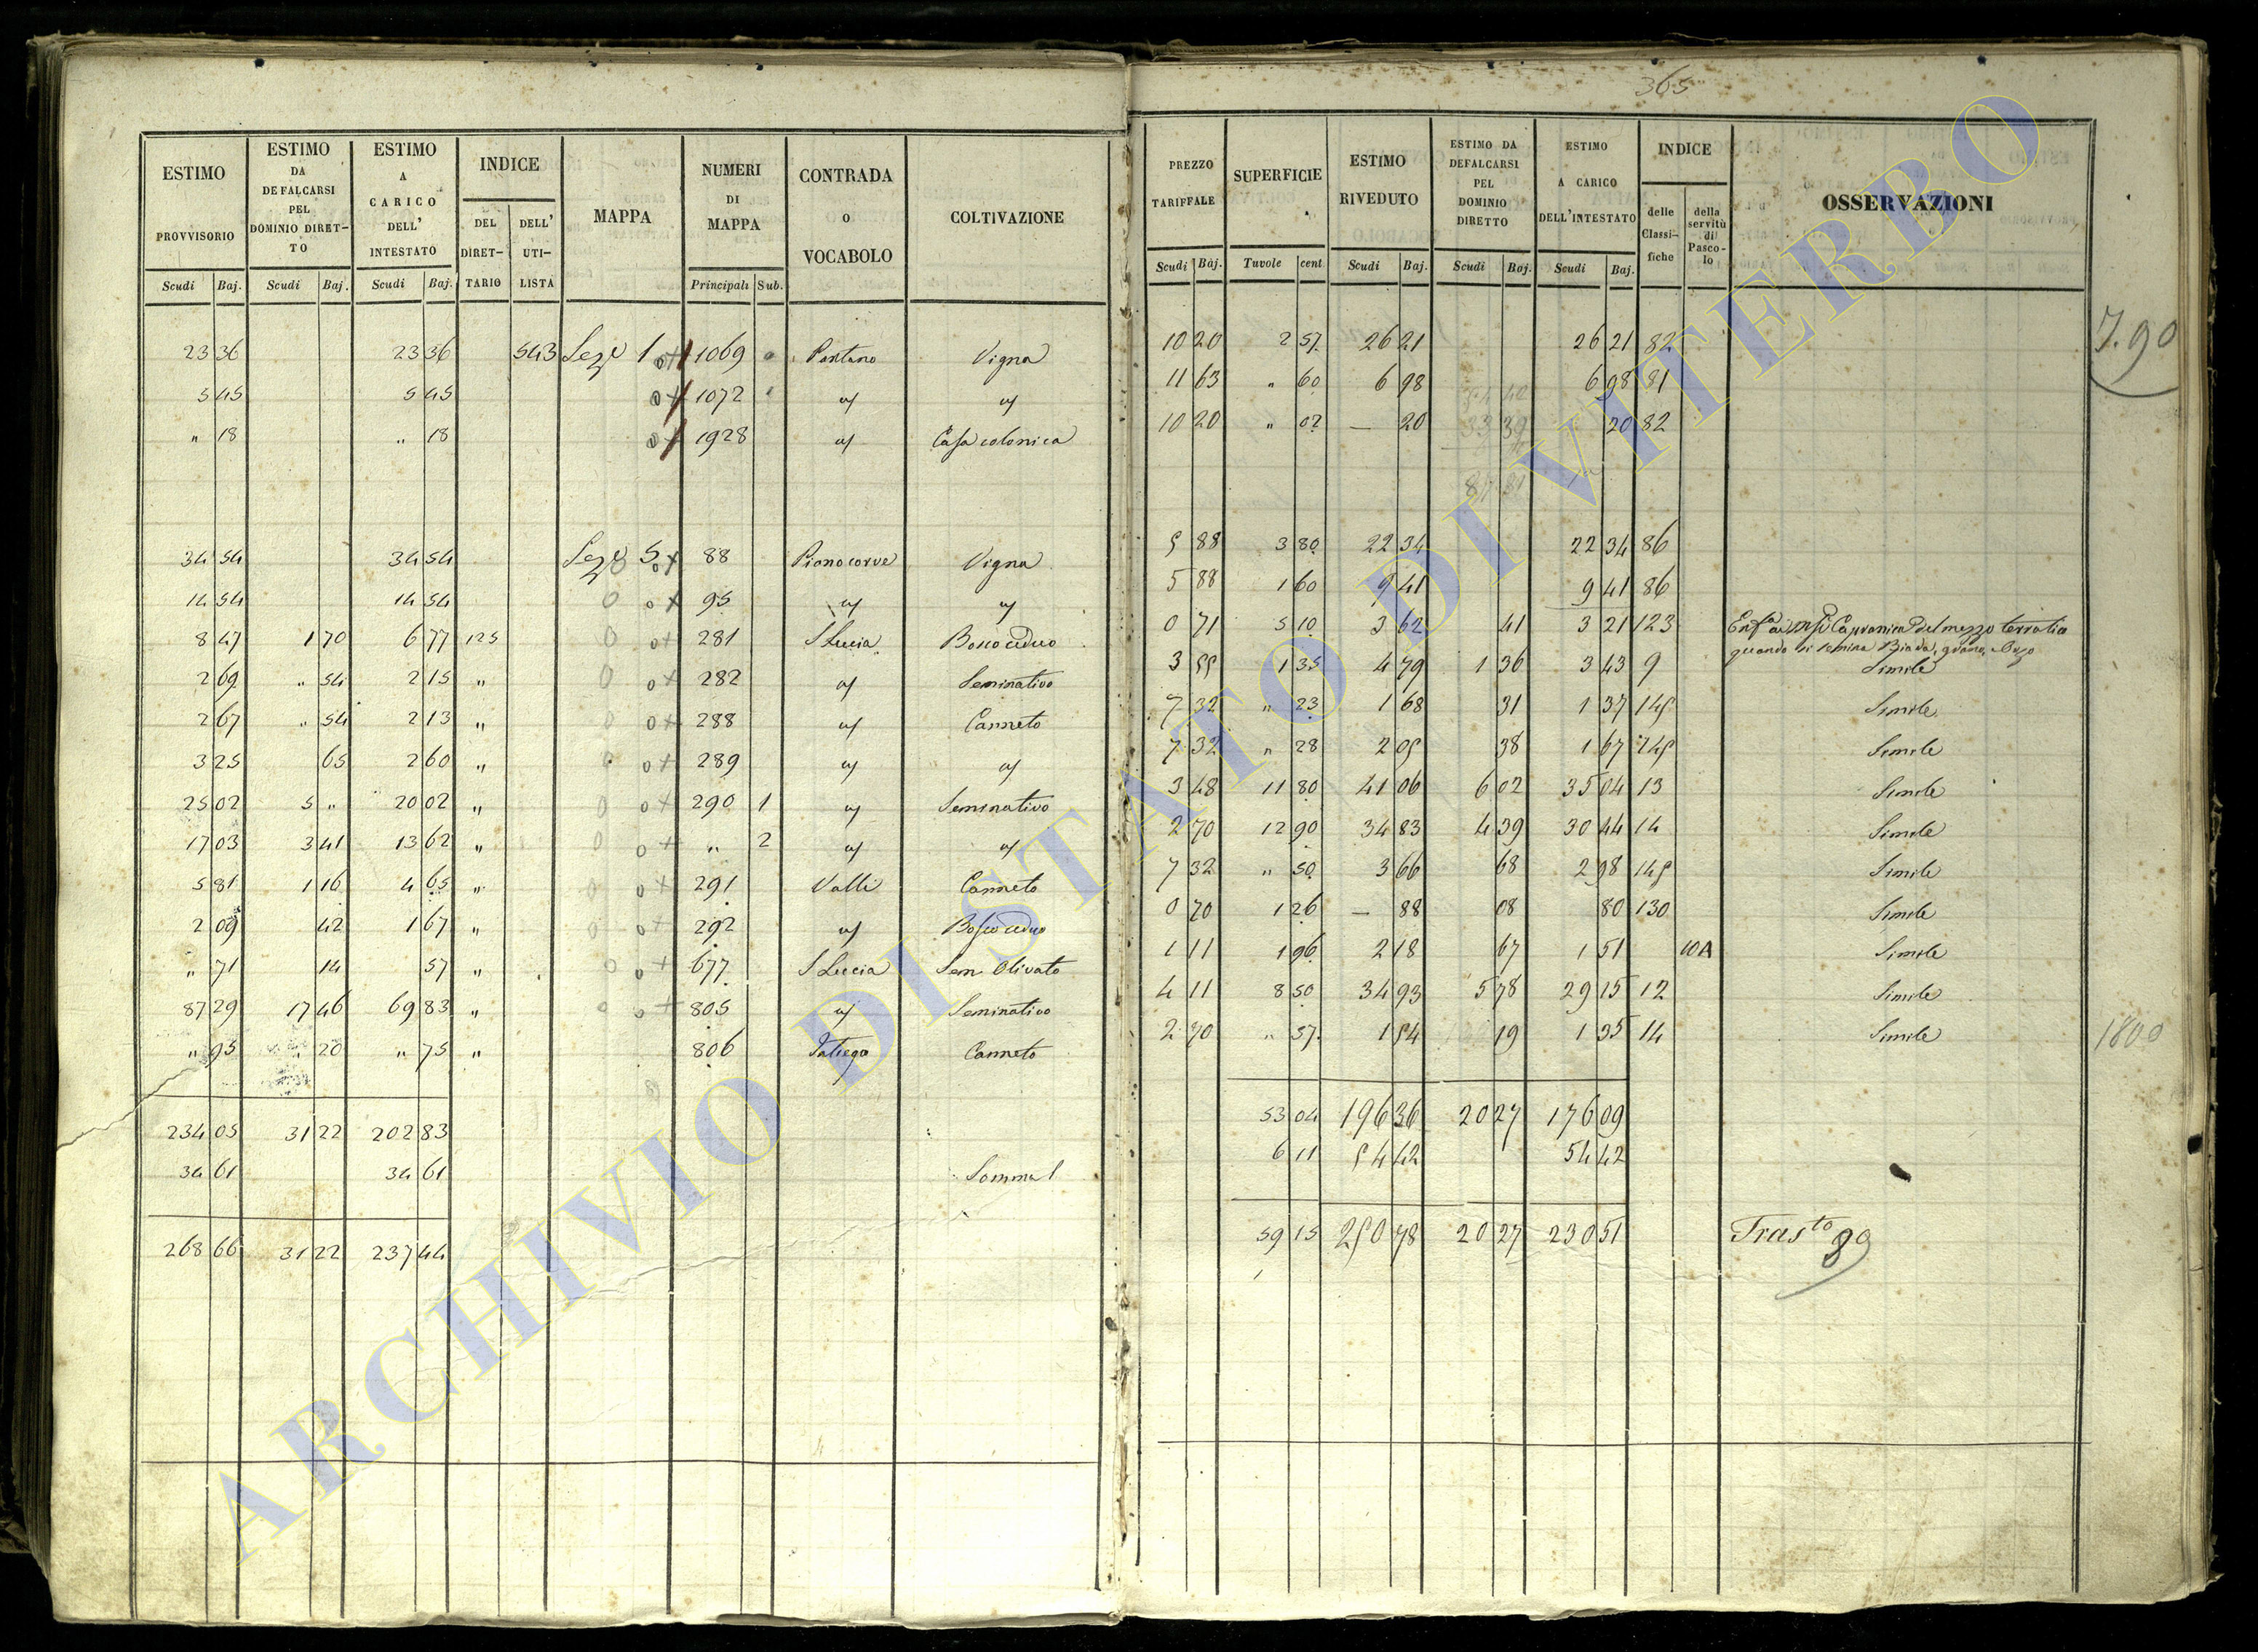 365
ESTIMO PROVVISORIO | ESTIMO DA DEFALCARSI PEL DOMINIO DIRETTO | ESTIMO A CARICO DELL' INTESTATO | INDICE | MAPPA | NUMERI DI MAPPA | CONTRADA O VOCABOLO | COLTIVAZIONE
DEL DIRETTARIO | DELL' UTILISTA
Scudi | Baj. | Scudi | Baj. | Scudi | Baj. | Principali | Sub.
23 36 | 23 36 | 543 | Seze 1 o+ | 1069 | Pantano | Vigna
5 45 | 5 45 | o+ | 1072 | " | "
" 18 | " 18 | o+ | 1928 | " | Casa colonica
34 54 | 34 54 | Seze 5 o+ | 88 | Pianocorve | Vigna
14 54 | 14 54 | o+ | 95 | " | "
8 47 | 1 70 | 6 77 | 125 | o+ | 281 | S Lucia | Bosco ceduo
2 69 | " 54 | 2 15 | " | o+ | 282 | " | Seminativo
2 67 | " 54 | 2 13 | " | o+ | 288 | " | Canneto
3 25 | 65 | 2 60 | " | o+ | 289 | " | "
25 02 | 5 " | 20 02 | " | o+ | 290 | 1 | " | Seminativo
17 03 | 3 41 | 13 62 | " | o+ | " | 2 | " | "
5 81 | 1 16 | 4 65 | " | o+ | 291 | Valli | Canneto
2 09 | 42 | 1 67 | " | o+ | 292 | " | Bosco ceduo
" 71 | 14 | 57 | " | o+ | 677 | S Lucia | Sem. Olivato
87 29 | 17 46 | 69 83 | " | o+ | 805 | " | Seminativo
" 95 | " 20 | " 75 | " | 806 | Canneto
234 05 | 31 22 | 202 83
34 61 | 34 61 | Somma 1
268 66 | 31 22 | 237 44
PREZZO TARIFFALE | SUPERFICIE | ESTIMO RIVEDUTO | ESTIMO DA DEFALCARSI PEL DOMINIO DIRETTO | ESTIMO A CARICO DELL'INTESTATO | INDICE | OSSERVAZIONI
delle Classifiche | della servitù di Pascolo
Scudi | Baj. | Tavole | cent | Scudi | Baj. | Scudi | Baj. | Scudi | Baj.
10 20 | 2 57 | 26 21 | 26 21 | 82
7.90
11 63 | " 60 | 6 98 | 6 98 | 81
10 20 | " 02 | — 20 | 20 | 82
5 88 | 3 80 | 22 34 | 22 34 | 86
5 88 | 1 60 | 9 41 | 9 41 | 86
0 71 | 5 10 | 3 62 | 41 | 3 21 | 123 | Capranica del mezzo terratico
quando si semina Biada, grano,
3 55 | 1 35 | 4 79 | 1 36 | 3 43 | 9 | Simile
7 32 | " 23 | 1 68 | 31 | 1 37 | 145 | Simile
7 32 | " 28 | 2 05 | 38 | 1 67 | 145 | Simile
3 48 | 11 80 | 41 06 | 6 02 | 35 04 | 13 | Simile
2 70 | 12 90 | 34 83 | 4 39 | 30 44 | 14 | Simile
7 32 | " 50 | 3 66 | 68 | 2 98 | 145 | Simile
0 70 | 1 26 | — 88 | 08 | 80 | 130 | Simile
1 11 | 1 96 | 2 18 | 67 | 1 51 | 10A | Simile
4 11 | 8 50 | 34 93 | 5 78 | 29 15 | 12 | Simile
2 70 | " 57 | 1 54 | 19 | 1 35 | 14 | Simile
1800
53 04 | 196 36 | 20 27 | 176 09
6 11 | 54 42 | 54 42
59 15 | 250 78 | 20 27 | 230 51 | Trasto 89
ARCHIVIO DI STATO DI VITERBO